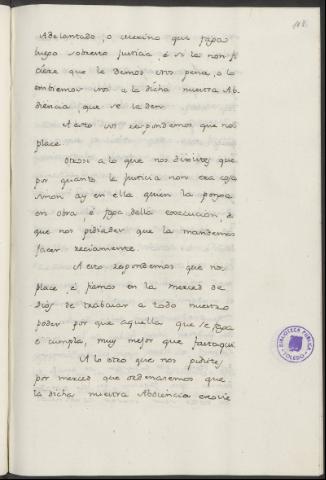 118.
Adelantado, o merino que faga
luego sobresto justicia, é si la non fi
ciere que le demos nos pena, o lo
embiemos nos a la dicha nuestra Ab
diencia, que se la den.
A esto vos respondemos que nos
place.
Otrosi a lo que nos dixistes que
por quanto la justicia non era cosa
sinon ay en ella quien la ponga
en obra, é faga della execucion, é
que nos pidiades que la mandemos
facer reciamente.
A esto respondemos que nos
place, é fiamos en la merced de
Dios de trabaiar a todo nuestro
poder por que aquella que se faga
e cumpla, muy mejor que fasta aqui
A lo otro que nos pidistes
por merced que ordenasemos que
la dicha nuestra Abdiencia estovie
BIBLIOTECA PUBLICA
TOLEDO